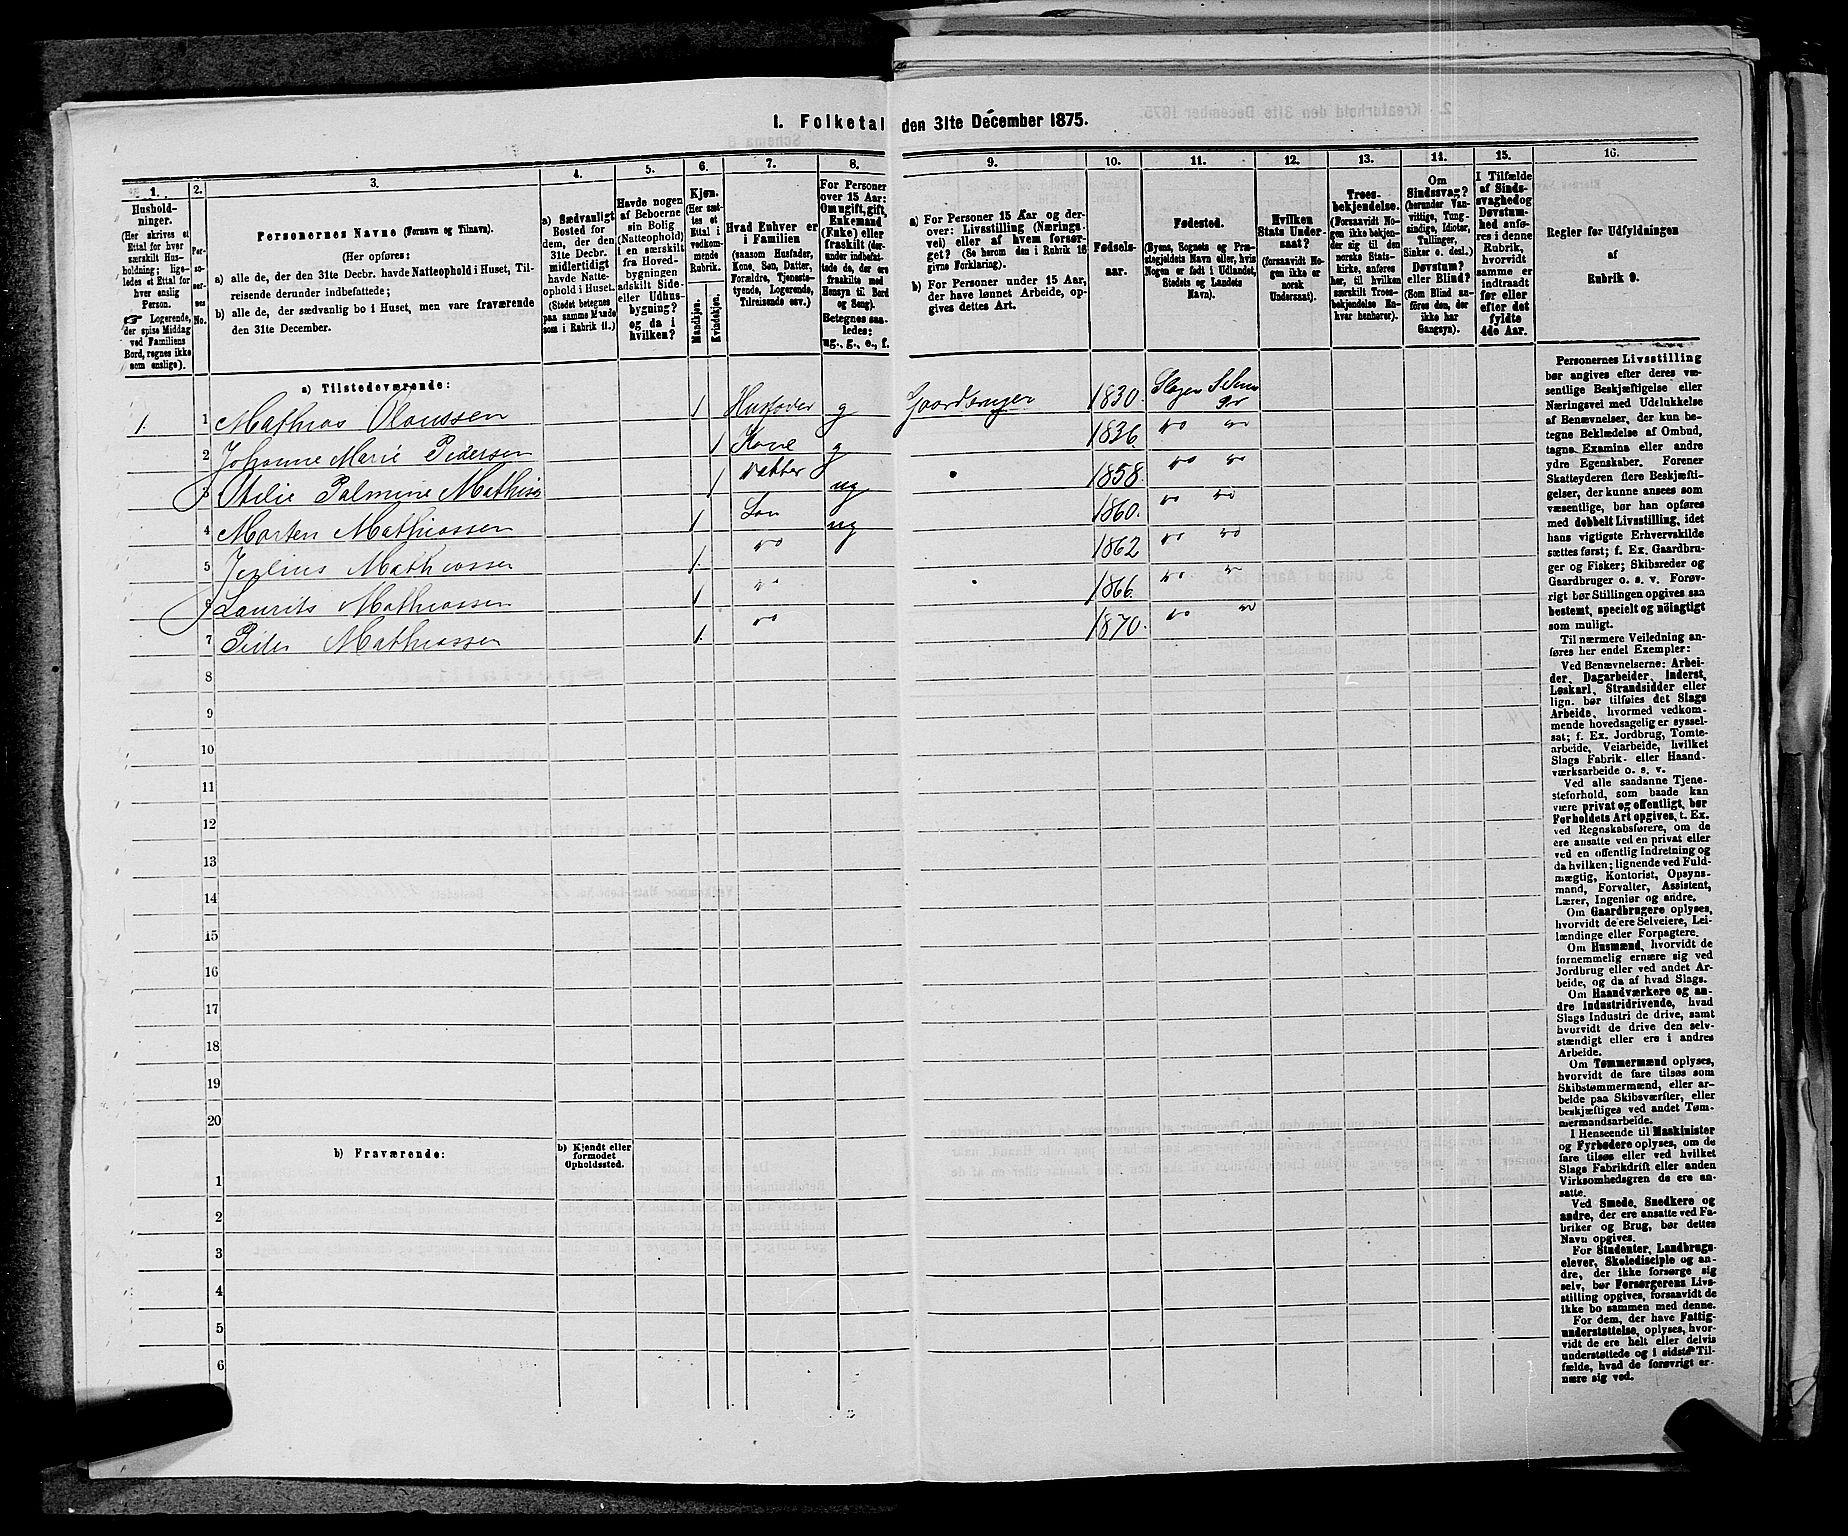 1. Folketal den 31te December 1875.
1. 2. 3. 4. 5. 6. 7. 8. 9. 10. 11. 12. 13. 14. 15. 16.
Husholdninger.
(Her skrives et
Ettal for hver
særskilt Husholdning;
ligeledes et Ettal for
hver enslig
Person.
☞ Logerende,
der spise Middag
ved Familiens
Bord, regnes ikke
som enslige).
Personernes No.
Personernes Navne (Fornavn og Tilnavn).
(Her opføres:
a) alle de, der den 31te Decbr. havde Natteophold i Huset, Tilreisende derunder indbefattede;
b) alle de, der sædvanlig bo i Huset, men vare fraværende
den 31te December.
a) Sædvanligt
Bosted for
dem, der den
31te Decbr.
midlertidigt
havde Natteophold
i Huset.
(Stedet betegnes
paa samme Maade
som i Rubrik 11.)
Havde nogen
af Beboerne
sin Bolig
(Natteophold)
i en særskilt
fra Hovedbygningen
adskilt Side-
eller Udhusbygning?
og da i
hvilken?
Kjøn.
(Her sættes et
Ettal i
vedkommende
Rubrik.
Mandkjøn.
Kvindekjøn.
Hvad Enhver er
i Familien
(saasom Husfader,
Kone, Søn, Datter,
Forældre, Tjenestetyende,
Logerende,
Tilreisende osv.)
For Personer
over 15 Aar:
Om ugift, gift,
Enkemand
(Enke) eller
fraskilt (derunder
indbefattede de, der ere
fraskilte med
Hensyn til Bord
og Seng).
Betegnes saaledes:
ug., g., e., f.
a) For Personer 15 Aar og derover:
Livsstilling (Næringsvei)
eller af hvem forsørget?
(Se herom den i Rubrik 16
givne Forklaring).
b) For Personer under 15 Aar,
der have lønnet Arbeide, opgives
dettes Art.
Fødselsaar.
Fødested.
(Byens, Sognets og Præstegjeldets
Navn eller, hvis
Nogen er født i Udlandet,
Stedets og Landets
Navn).
Hvilken
Stats Undersaat?
(forsaavidt Nogen
ikke er
norsk
Undersaat).
Troesbekjendelse.
(Forsaavidt Nogen
ikke bekjender
sig til den
norske Statskirke,
anføres
her, til hvilken
særskilt Troesbekjendelse
Enhver henhører).
Om
Sindssvag?
(herunder Vanvittige,
Tungsindige, Idioter,
Tullinger,
Sinker o. desl.)
Døvstum?
eller Blind?
(Som Blind anføres
den, der
ikke har
Gangsyn).
I Tilfælde
af Sindssvaghed
og Døvstumhed
anføres
i denne
Rubrik,
hvorvidt
samme er
indtraadt
før eller
efter det
fyldte
4de Aar.
Regler for Udfyldningen
af
Rubrik 9.
a) Tilstedeværende:
1. 1 Mathias Olaussen 1 Husfader g Gaardbruger 1830. Slagen Sem Pr
2 Johanne Marie Pedersen 1 Kone g 1836. do do
3 Otelie Palmine Mathis 1 Datter ug 1858. do do
4 Morten Mathiassen 1 Søn ug 1860. do do
5 Julius Mathiassen 1. do 1862 do do
6 Laurits Mathiassen 1 do 1866. do do
7 Peder Mathiassen 1. do 1870. do do
8
9
10
11
12
13
14
15
16
17
18
19
20
b) Fraværende:
b) Kjendt eller
formodet
Opholdssted.
1
2
3
4
5
6
Personernes Livsstilling
bør angives efter deres væsentlige
Beskjæftigelse eller
Næringsvei med Udelukkelse
af Benævnelser, der kun betegne
Beklædelse af Ombud,
tagne Examina eller andre
ydre Egenskaber. Forener
Skatteyderen flere Beskjæftigelser,
der kunne ansees som
væsentlige, bør han opføres
med dobbelt Livsstilling, idet
hans vigtigste Erhvervskilde
sættes først; f. Ex. Gaardbruger
og Fisker; Skibsreder og
Gaardbruger o. s. v. Forøvrigt
bør Stillingen opgives saa
bestemt, specielt og nöiagtigt
som muligt.
Til nærmere Veiledning anføres
her endel Exempler:
Ved Benævnelserne: Arbeider,
Dagarbeider, Inderst,
Løskarl, Strandsidder eller
lign. bør tilføies det Slags
Arbeide, hvormed vedkommende
hovedsagelig er sysselsat;
f. Ex. Jordbrug, Tomtearbeide,
Veiarbeide, hvilket
Slags Fabrik- eller Haandværksarbeide
o. s. v.
Ved alle saadanne Tjenesteforhold,
som baade kan
være privat og offentligt, bør
Forholdets Art opgives, t. Ex.
ved Regnskabsførere, om de
ere ansatte ved en privat eller
ved en offentlig Indretning og
da hvilken; lignende ved Fuldmægtig,
Kontorist, Opsynsmand,
Forvalter, Assistent,
Lærer, Ingeniør og andre.
Om Gaardbrugere oplyses,
hvorvidt de ere Selveiere, Leilændinge
eller Forpagtere.
Om Husmænd, hvorvidt de
fornemmelig ernære sig ved
Jordbrug eller ved andet Arbeide,
og da af hvad Slags.
Om Haandværkere og andre
Industridrivende, hvad
Slags Industri de drive, samt
hvorvidt de drive den selvstændigt
eller ere i andres
Arbeide.
Om Tømmermænd oplyses,
hvorvidt de fare tilsøs som
Skibstømmermænd, eller arbeide
paa Skibsværfter, eller
beskjæftiges ved andet Tømmermandsarbeide.
I Henseende til Maskinister
og Fyrbødere oplyses, om de
fare tilsøs eller ved hvilket
Slags Fabrikdrift eller anden
Virksomhedsgren de ere ansatte.
Ved Smede, Snedkere og
andre, der ere ansatte ved Fabriker
og Brug, bør dettes
Navn opgives.
For Studenter, Landbrugselever,
Skoledisciple og andre,
der ikke forsørge sig
selv, bør Forsørgerens Livsstilling
opgives, forsaavidt de
ikke bo sammen med denne.
For dem, der have Fattigunderstøttelse,
oplyses, hvorvidt
de ere helt eller delvis
understøttede og i sidste Tilfælde,
hvad de forøvrigt ernære
sig ved.